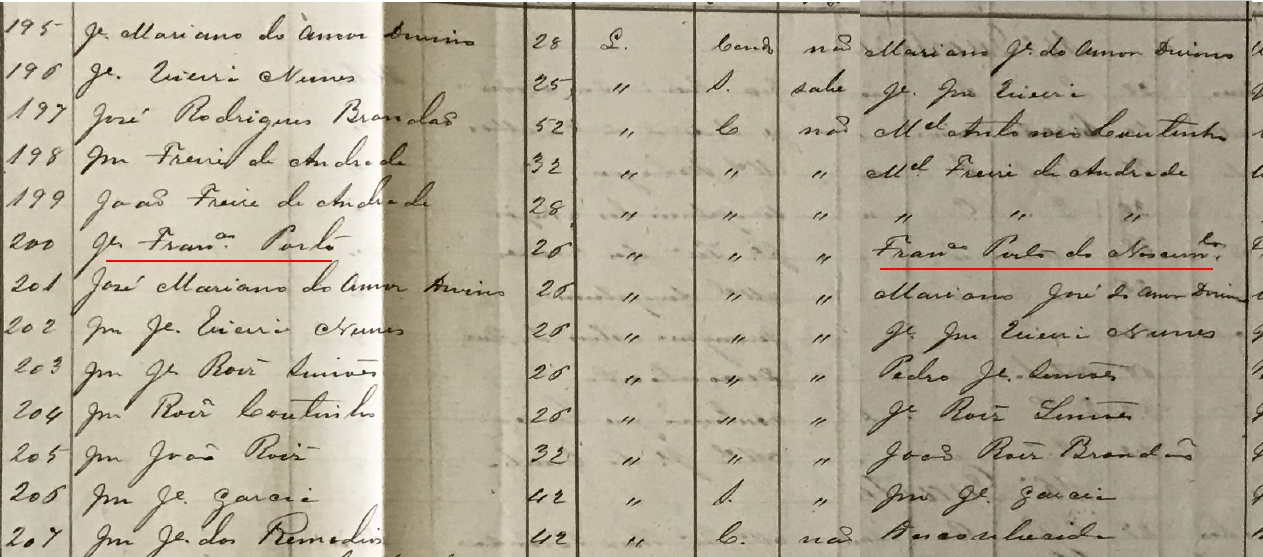 195 Je. Mariano do Amor Divino 28 L. Casado não Mariano Je. do Amor Divino
196 Je. Vieira Nunes 25 " S. sabe Je. Jm Vieira
197 José Rodrigues Brandão 52 " C. não Mel. Antonio Coutinho
198 Jm Freire de Andrade 32 " " " Mel. Freire de Andrade
199 João Freire de Andrade 28 " " " " " "
200 Je. Franco. Porto 26 " " " Franco. Porto do Nascimto.
201 José Mariano do Amor Divino 26 " " " Mariano José do Amor Divino
202 Jm Je. Vieira Nunes 26 " " " Je. Jm Vieira Nunes
203 Jm Je. Roiz Simões 26 " " " Pedro Je. Simões
204 Jm Roiz Coutinho 26 " " " Je. Roiz Simões
205 Jm João Roiz 32 " " " João Roiz Brandão
206 Jm Je. Garcia 42 " S. " Jm Je. Garcia
207 Jm Je. dos Remedios 42 " C. não Desconhecido